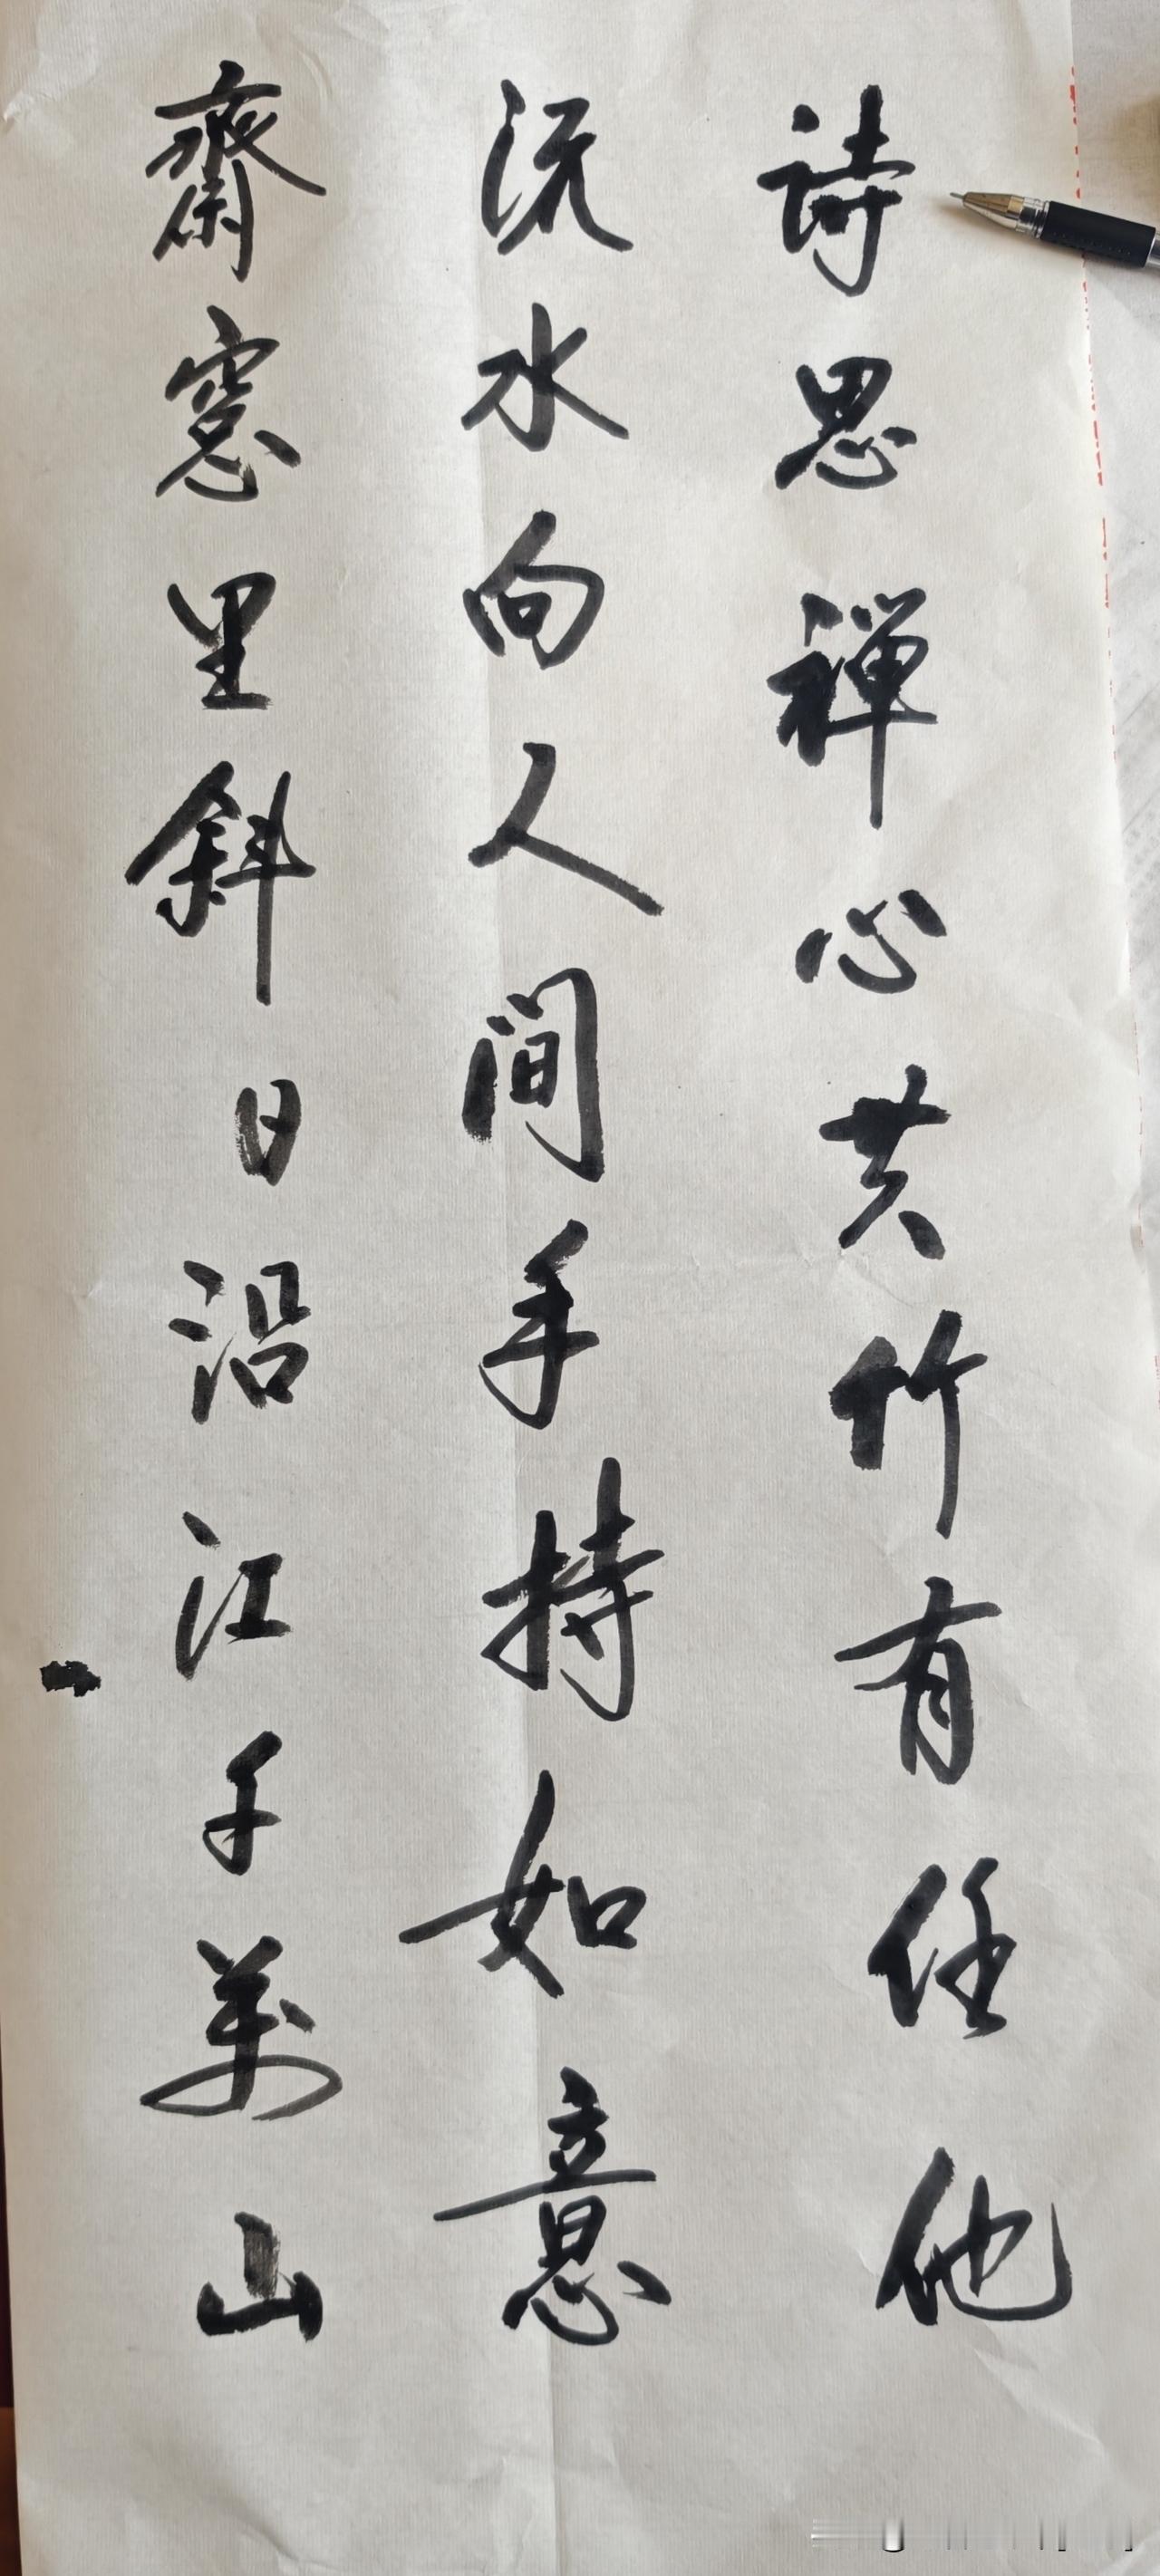 詩思禪心共竹有任他
流水向人間手持如意
齋窓里斜日沿江千萬山